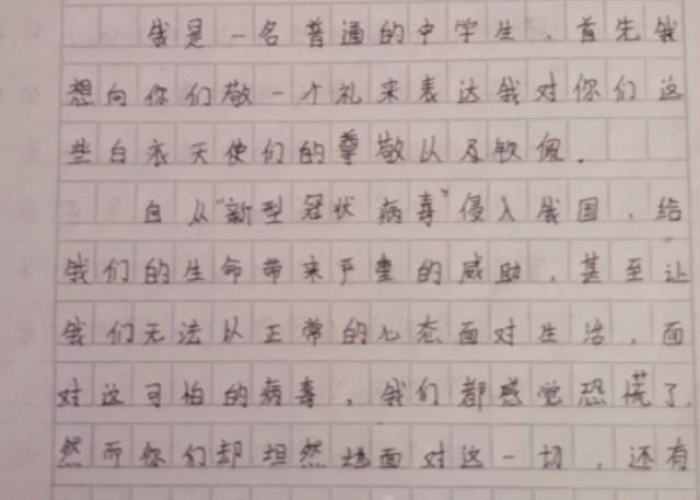 我是一名普通的中学生，首先我
想向你们敬一个礼来表达我对你们这
些白衣天使们的尊敬以及钦佩。
自从“新型冠状病毒”侵入我国，给
我们的生命带来严重的威胁，甚至让
我们无法以正常的心态面对生活，面
对这可怕的病毒，我们都感觉恐慌了，
然而你们却坦然地面对这一切，还有